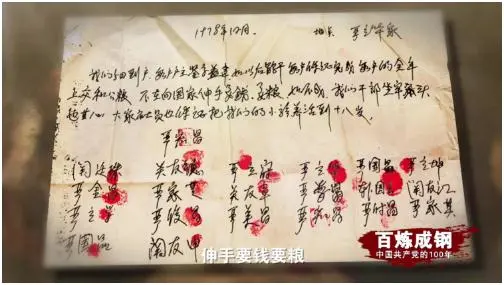 1978年12月 地点 严立华家
我们分田到户 每户户主签字盖章 如以后能干 每户保证完成每户的全年
上交和公粮 不在向国家伸手要钱要粮 如不成 我们干部坐牢刹头
也干心 大家社员也保证把我们的小孩养活到十八岁
严宏昌
关廷珠 关友德 严立富 严立华 严国昌 严立坤
严金昌 严家芝 关友章 严学昌 韩国云 关友江
严立学 严俊昌 严美昌 严付昌 严家其
严国品 关友申
伸手要钱要粮
百炼成钢
中国共产党的100年